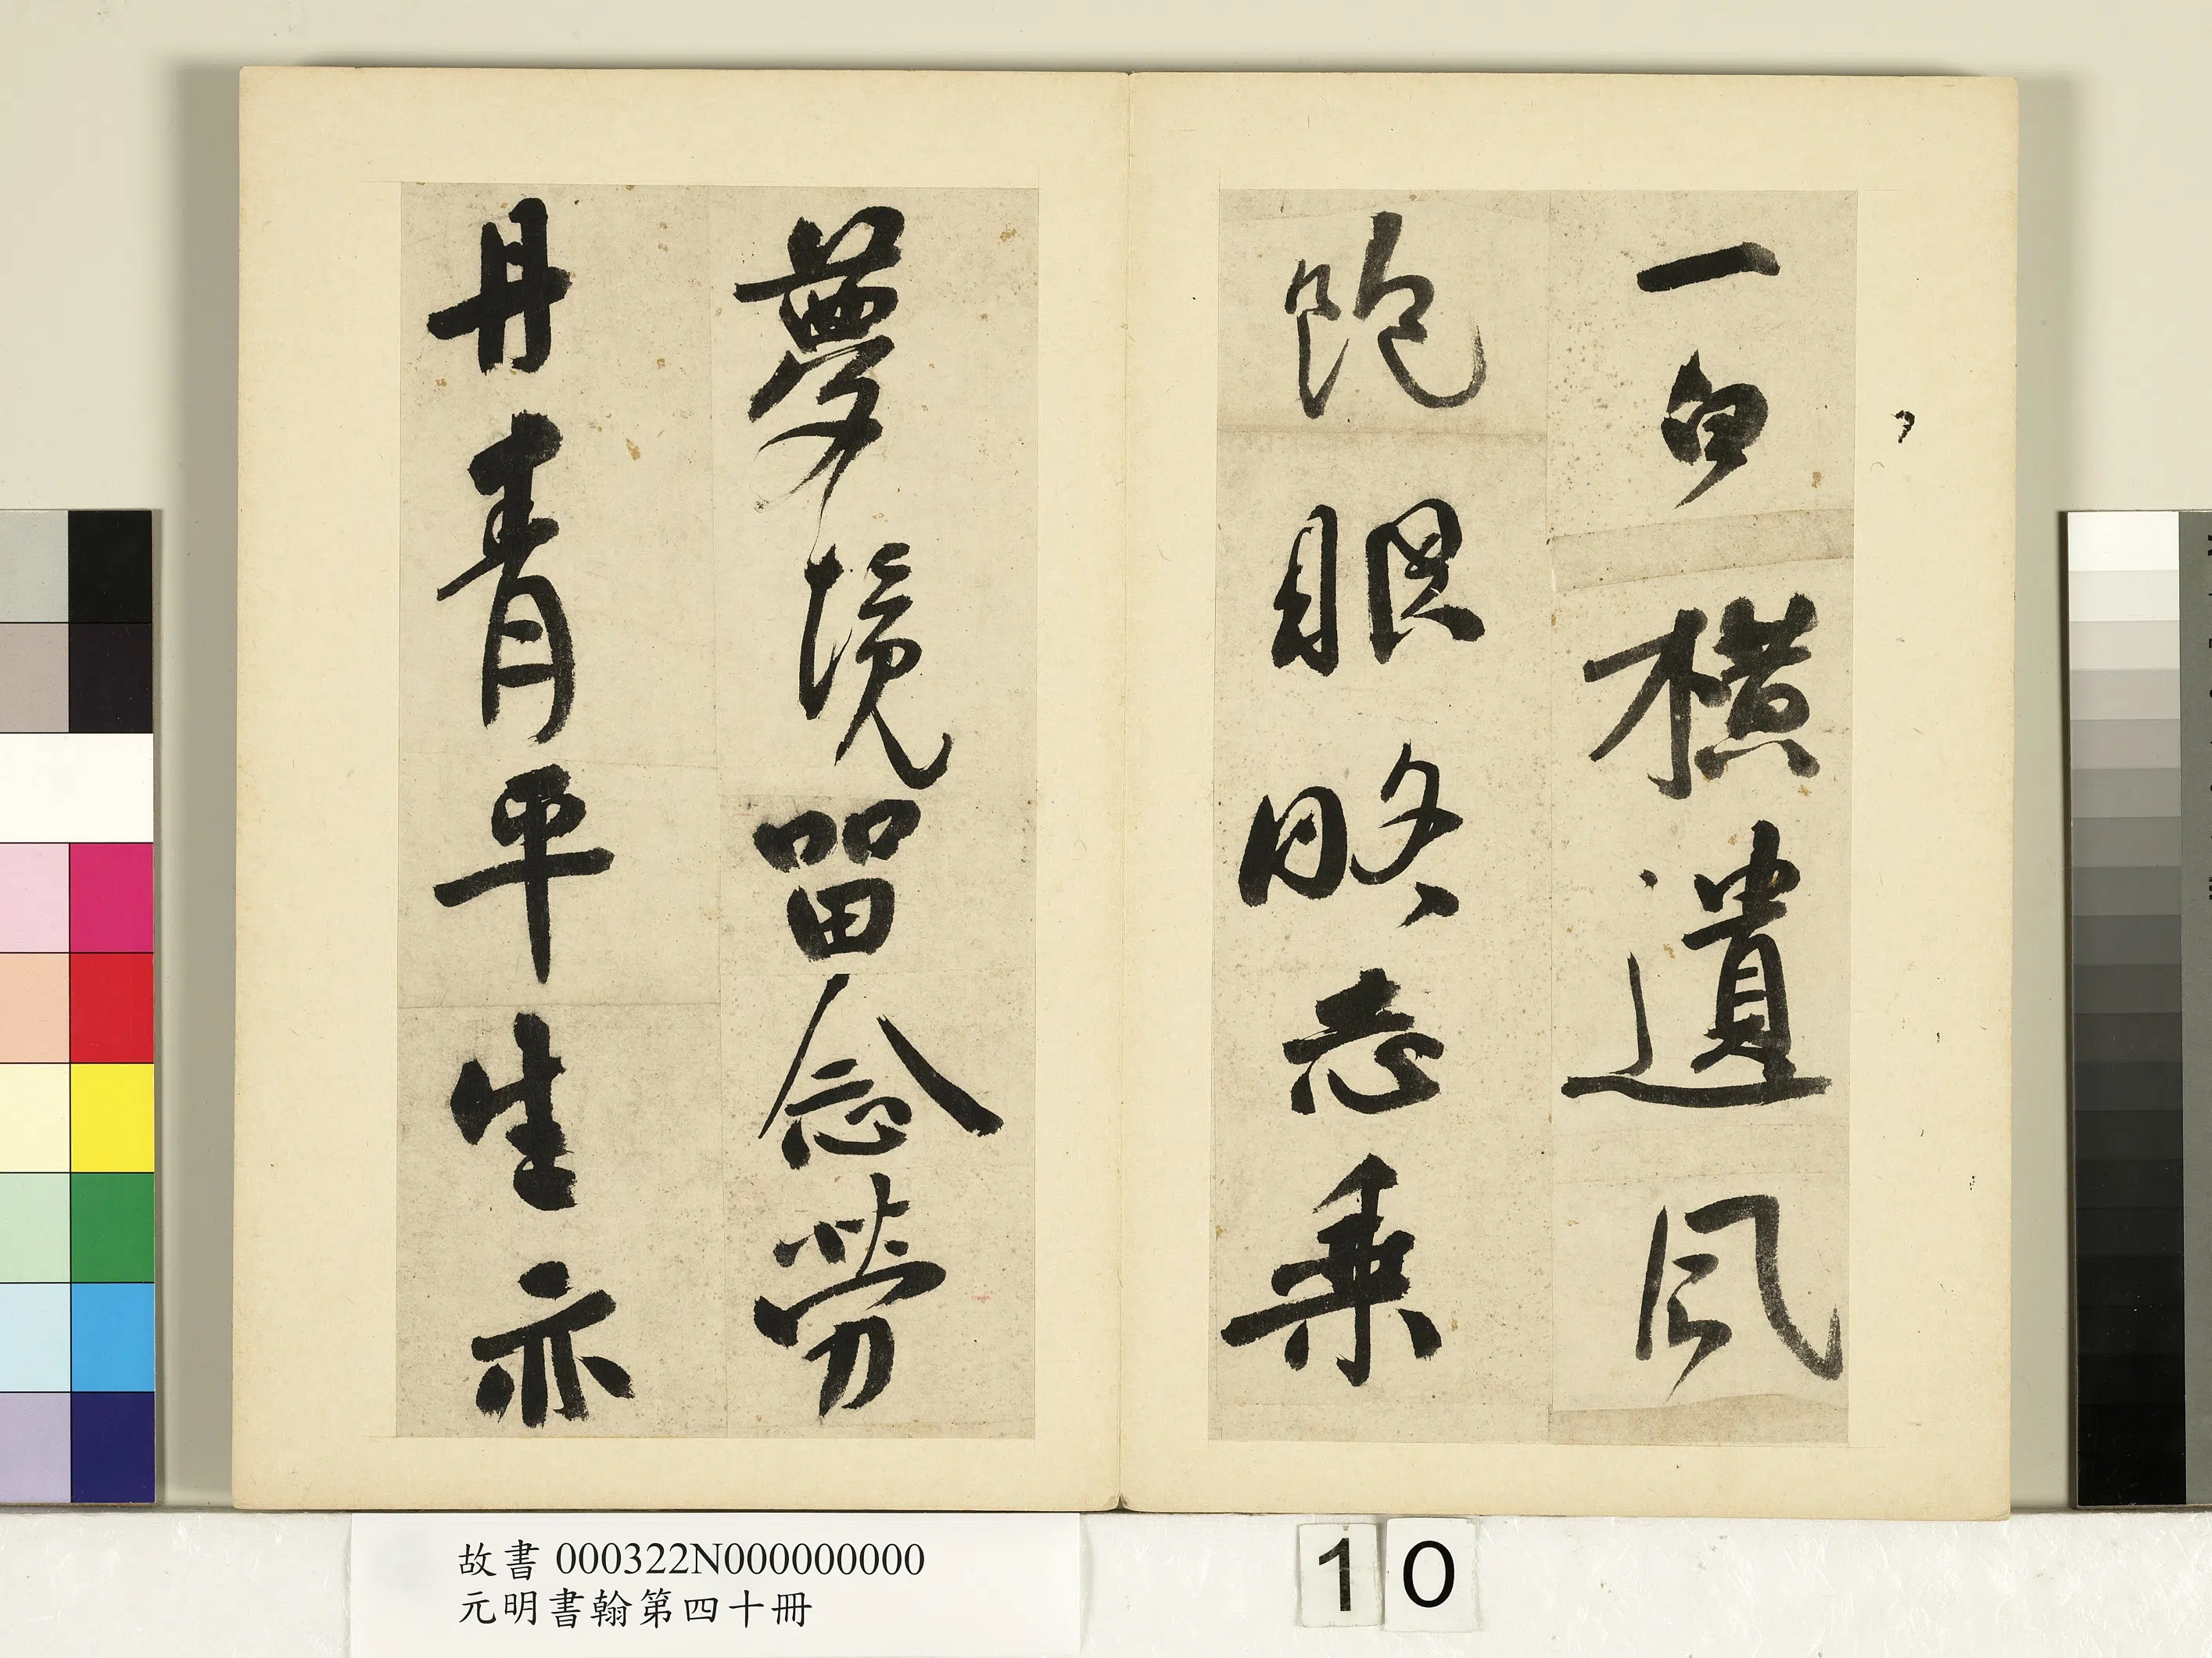 一白橫遺風
飽眼略忘乘
夢境留念勞
丹青平生亦
故書 000322N000000000
元明書翰第四十冊
10